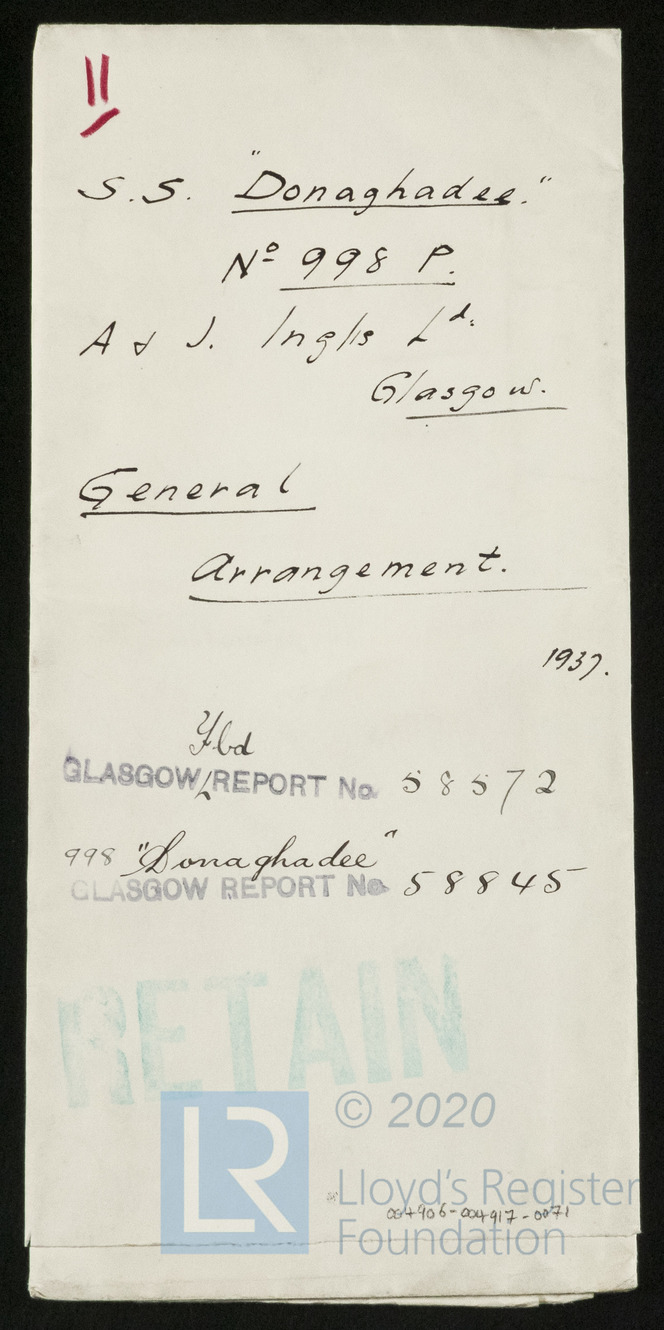 11
S.S. "Donaghadee."
Nº 998 P.
A & J. Inglis Ld.
Glasgow.
General
Arrangement.
1937.
Fbd
GLASGOW REPORT No. 58572
998 "Donaghadee"
GLASGOW REPORT No. 58845
RETAIN
LR
© 2020
Lloyd's Register
Foundation
004906-004917-0071